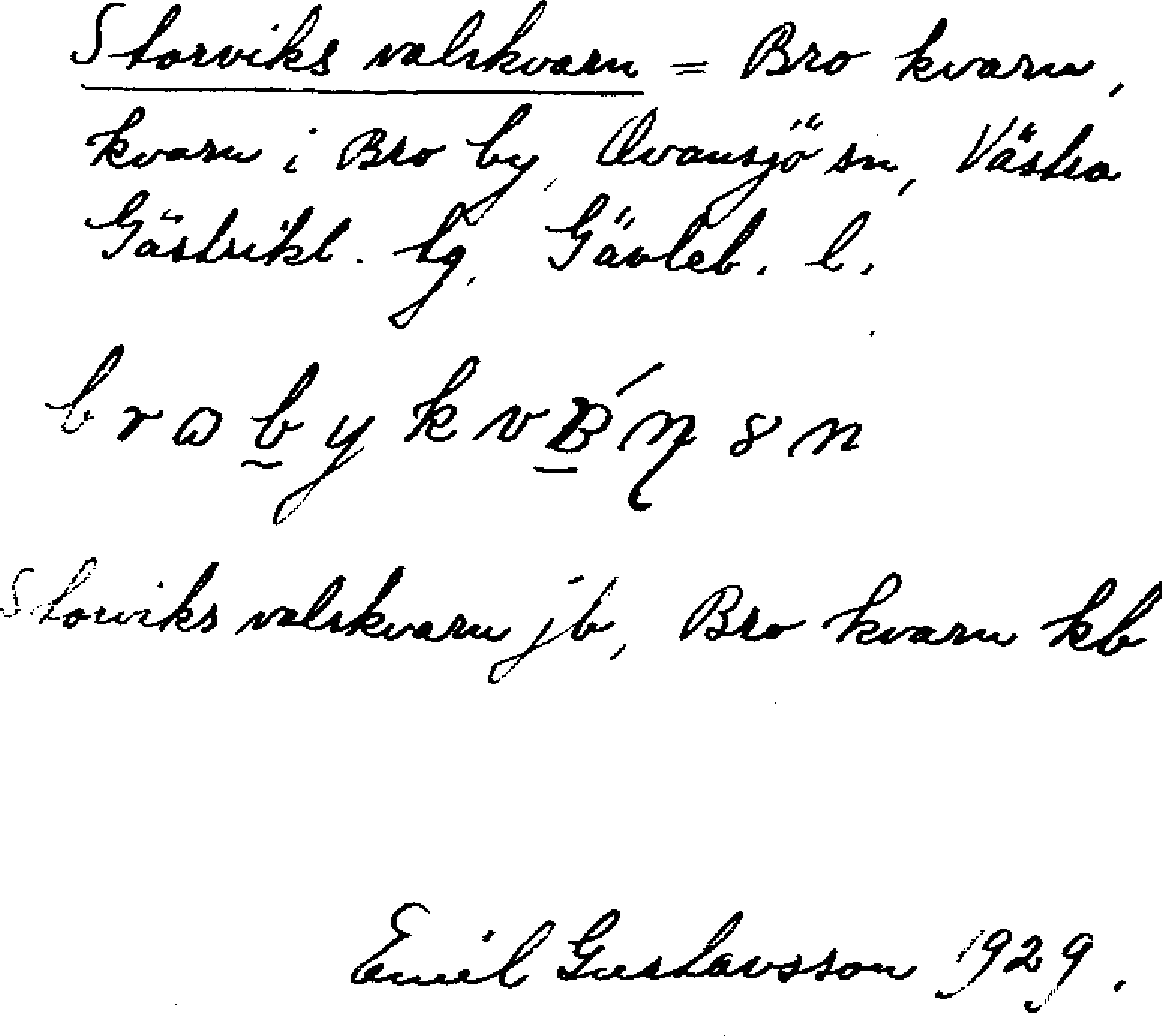 Storviks valskvarn = Bro kvarn,
kvarn i Bro by, Ovansjö sn, Västra
Gästrikl. tg, Gävleb. l.
Storviks valskvarn jb, Bro kvarn kb
Emil Gustavsson 1929.